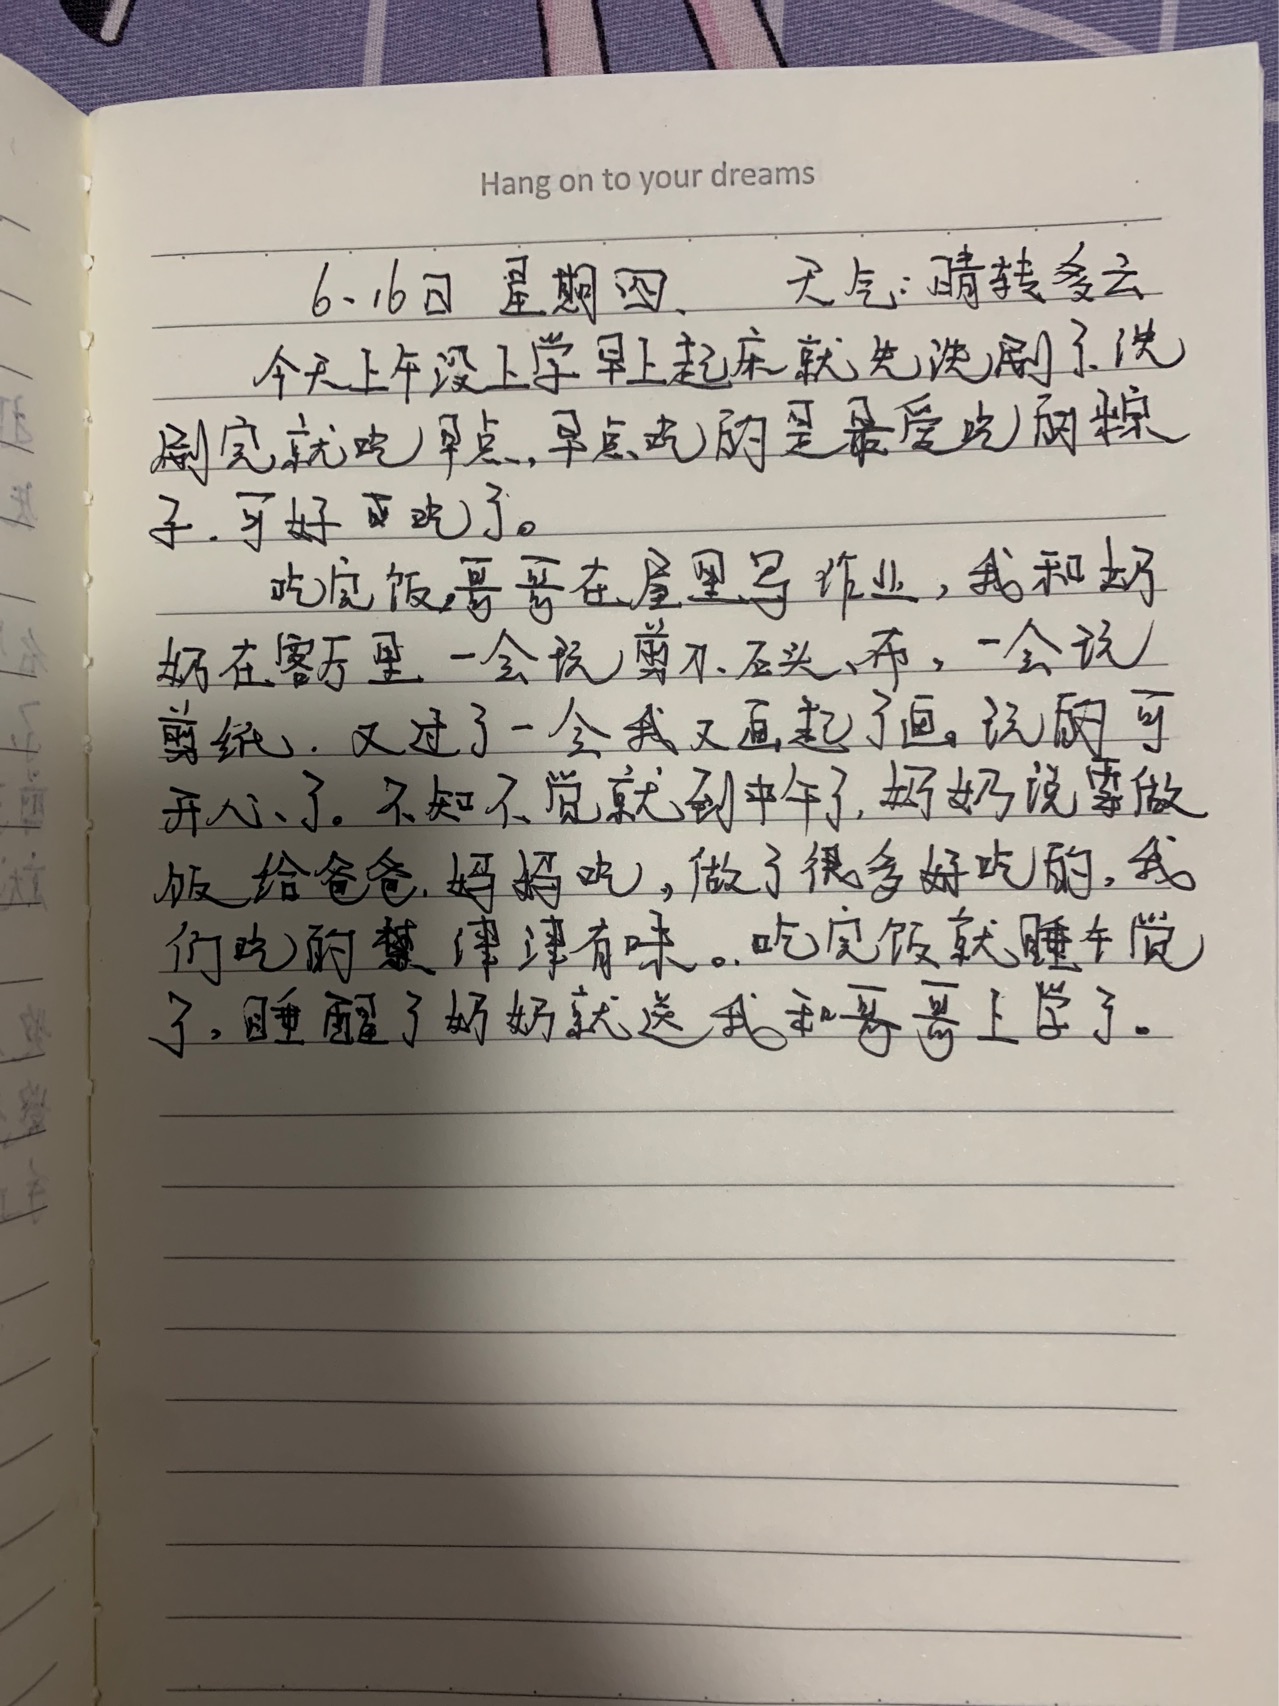 Hang on to your dreams
6.16日 星期四. 天气:晴转多云
今天上午没上学早上起床就先洗刷了.洗
刷完就吃早点,早点吃的是最爱吃的粽
子.可好可吃了。
吃完饭,哥哥在屋里写作业,我和奶
奶在客厅里一会玩剪不.石头、布,一会玩
剪纸.又过了一会我又画起了画。玩的可
开心、了。不知不觉就到中午了.奶奶说要做
饭给爸爸.妈妈吃,做了很多好吃的,我
们吃的 津津有味。.吃完饭就睡午觉
了,睡醒了奶奶就送我和哥哥上学了.